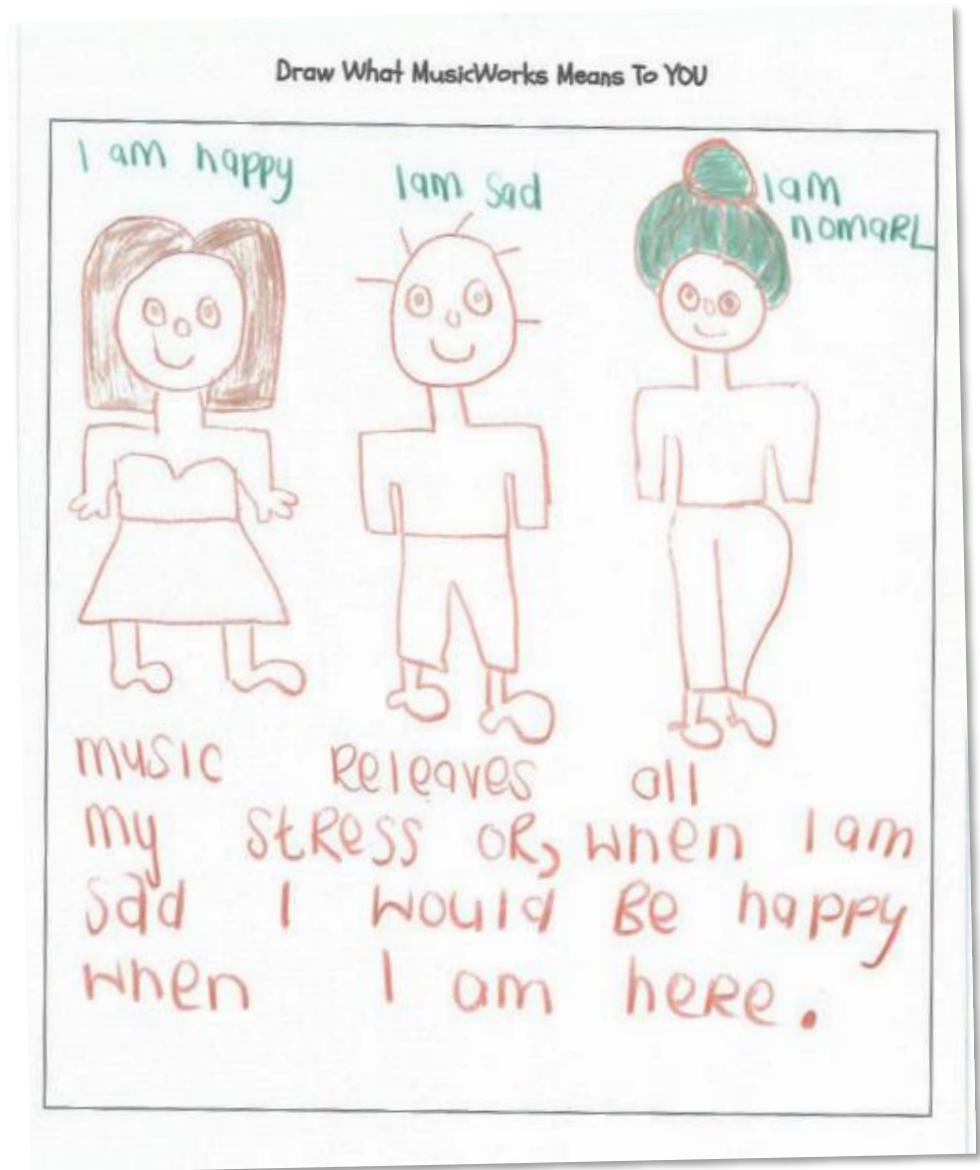 Draw What MusicWorks Means To YOU
I am happy
I am sad
I am
nomaRL
music Releaves all
my stRess oR, when I am
sad I would Be happy
when I am heRe.